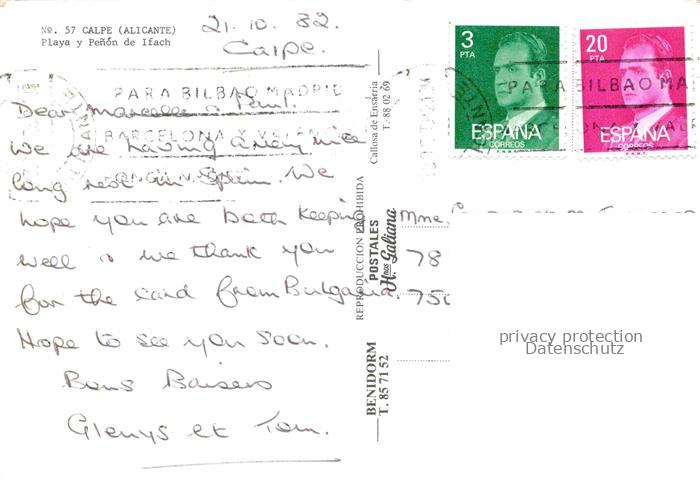 No. 57 CALPE (ALICANTE)
Playa y Peñón de Ifach
21.10.82.
Calpe.
PARA BILBAO MADRID
Dear Marcelle & Paul.
BARCELONA Y VALEN
We are having a very nice
long rest in Spain. We
hope you are both keeping
well & we thank you
for the card from Bulgaria.
Hope to see you soon.
Bons Baisers
Glenys et Tom.
Callosa de Ensarria
T. 88 02 69
REPRODUCCION PROHIBIDA
POSTALES
Hnos Galiana
BENIDORM
T. 85 71 52
3
PTA
ESPAÑA
CORREOS
20
PTA
ESPAÑA
CORREOS
PARA BILBAO MA
Mme.
78
750
privacy protection
Datenschutz